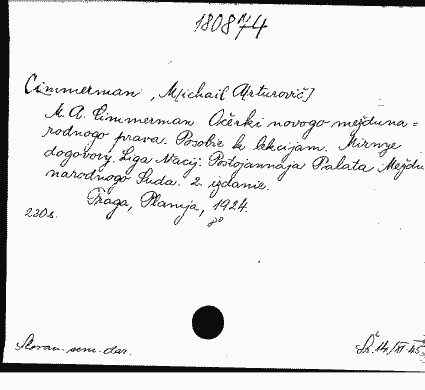 180874
Cimmerman, M[ichail Arturovič]
M. A. Cimmerman Očerki novogo mežduna=
rodnogo prava. Posobie k lekcijam. Mirnye
dogovory. Liga Nacij. Postojannaja Palata Meždu
narodnogo Suda. 2. izdanie.
Praga, Plamja, 1924.
8°
230s.
Slovan. sem. dar.